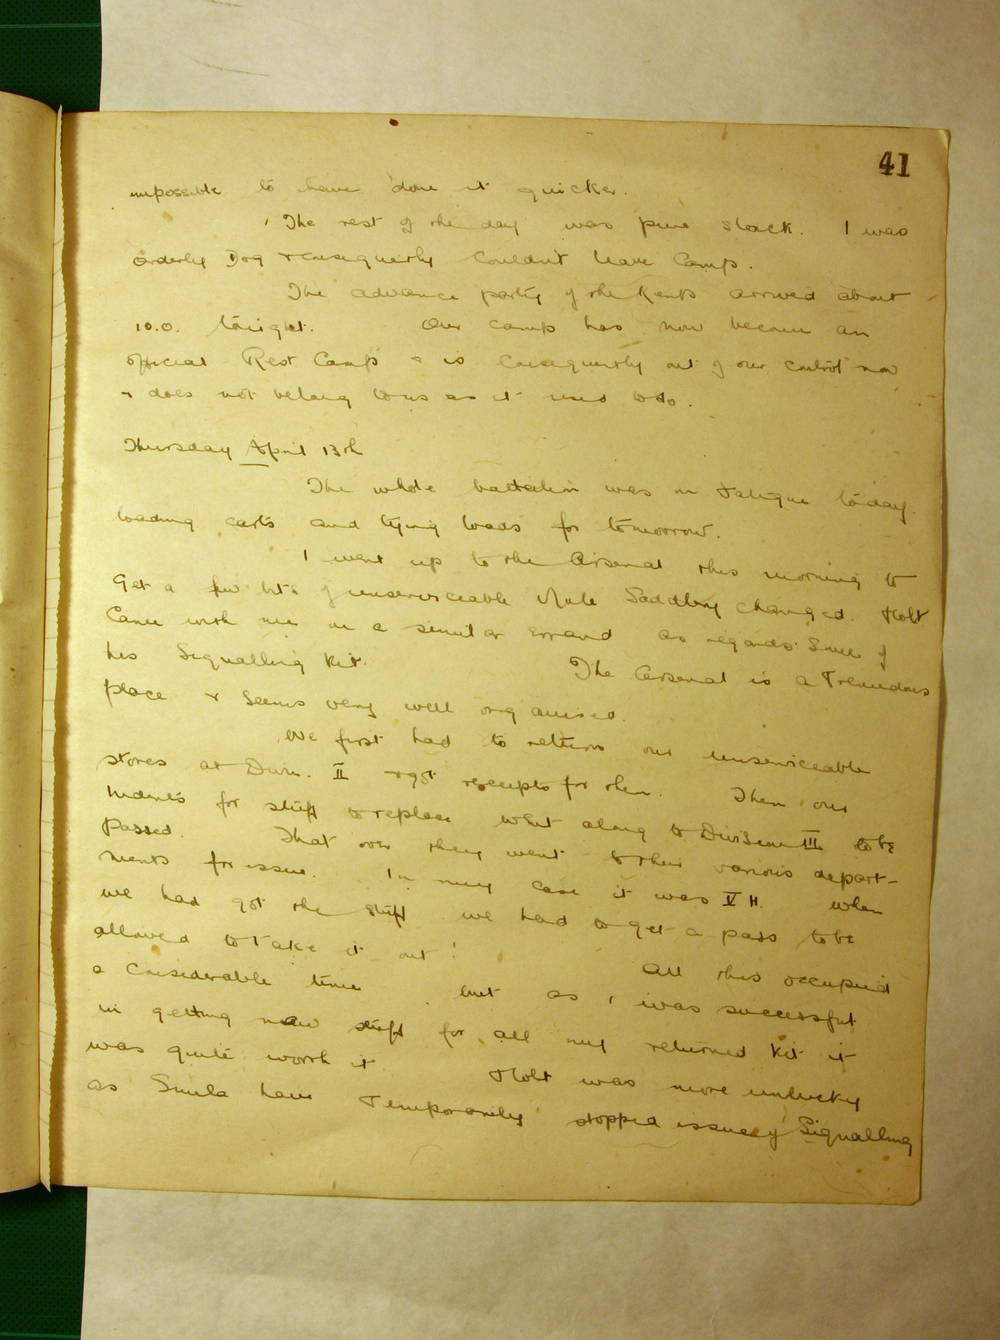 41
impossible to have done it quicker.
The rest of the day was pure slack. I was
Orderly Dog & consequently couldn't leave Camp.
The advance party of the Kents arrived about
10.0. tonight. Our camp has now become an
official Rest Camp & is consequently out of our control now
& does not belong to us as it used to do.
Thursday April 13th
The whole battalion was on Fatigue today.
loading carts and tying loads for tomorrow.
I went up to the Arsenal this morning to
get a few bits of unserviceable Mule Saddlery changed. Holt
came with me on a similar errand as regards some of
his Signalling kit. The Arsenal is a Tremendous
place & seems very well organised.
We first had to return our unserviceable
stores at Divn. II & got receipts for them. Then our
Indents for stuff to replace went along to Division III to be
passed. That over they went to their various depart-
ments for issue. In my case it was V H. When
we had got the stuff we had to get a pass to be
allowed to Take it out! All this occupied
a considerable time but as I was successful
in getting new stuff for all my returned kit it
was quite worth it Holt was more unlucky
as Simla have Temporarily stopped issuing Signalling